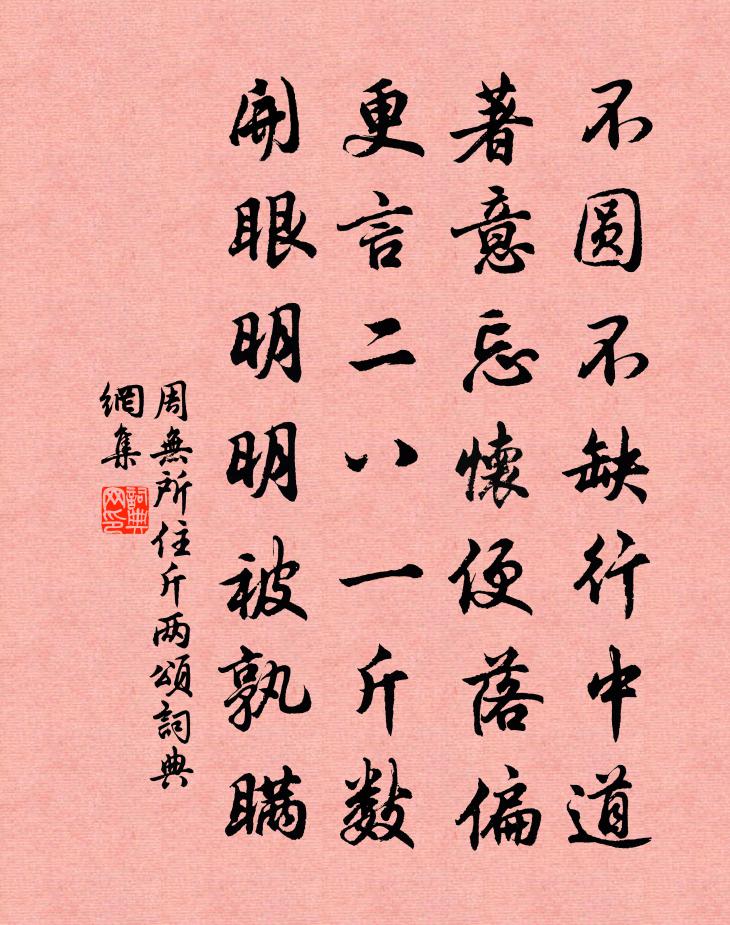 不圆不缺行中道
著意忘懷便落偏
更言二八一斤数
開眼明明被孰瞒
周無所住斤两頌詞典
網集
詞典
网印